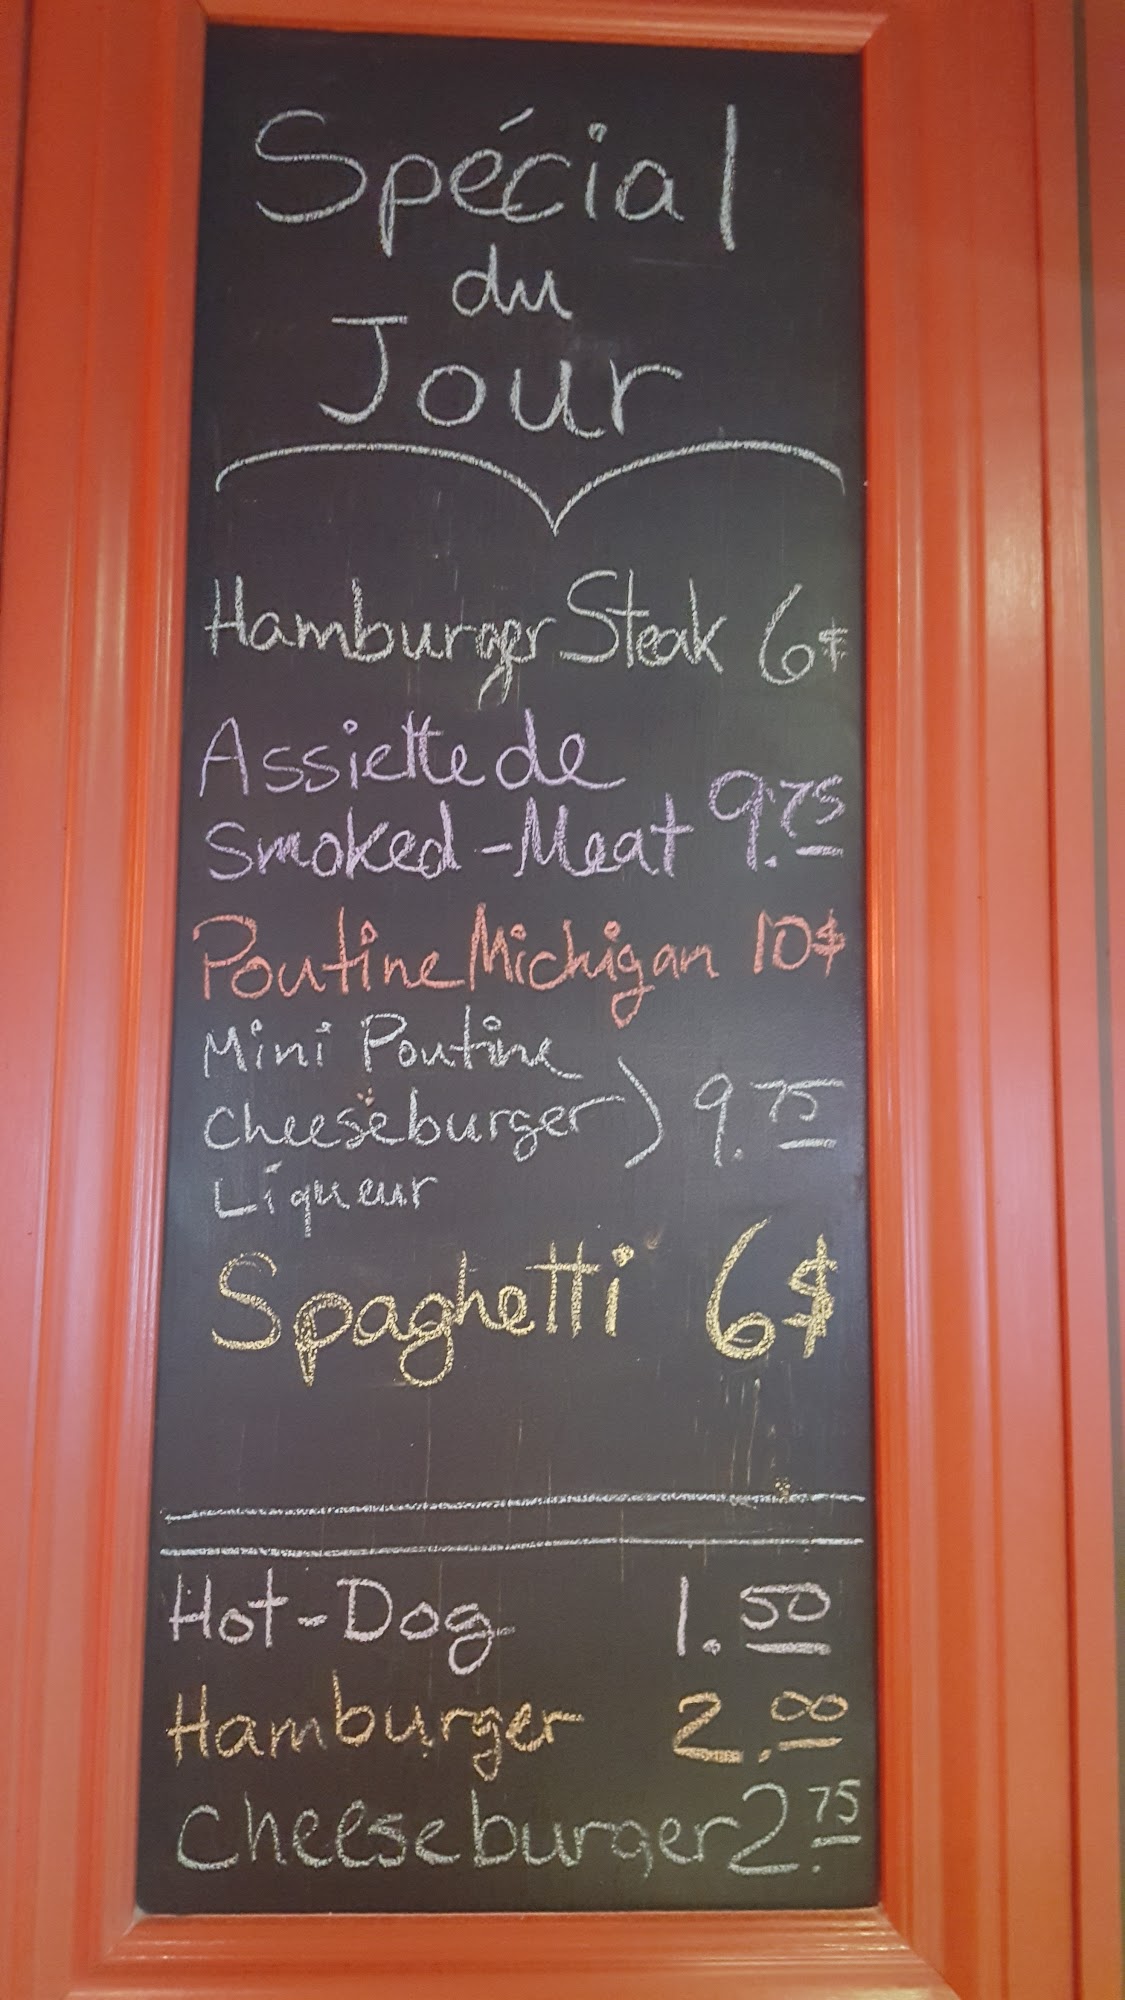 Spécial
du
Jour
Hamburger Steak 6$
Assiette de
Smoked-Meat 9.75
Poutine Michigan 10$
Mini Poutine
Cheeseburger) 9.75
Liqueur
Spaghetti 6$
Hot-Dog 1.50
Hamburger 2.00
Cheeseburger 2.75